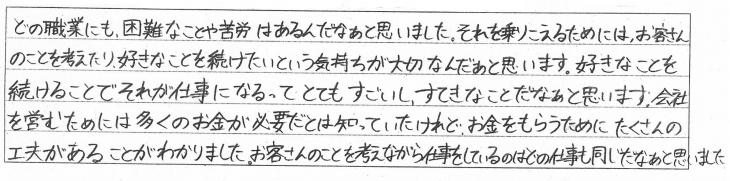 どの職業にも、困難なことや苦労はあるんだなあと思いました。それを乗りこえるためには、お客さん
のことを考えたり、好きなことを続けたいという気持ちが大切なんだあと思います。好きなことを
続けることでそれが仕事になるってとてもすごいし、すてきなことだなぁと思います。会社
を営むためには多くのお金が必要だとは知っていたけれど、お金をもらうためにたくさんの
工夫があることがわかりました。お客さんのことを考えながら仕事をしているのはどの仕事も同じだなあと思いました